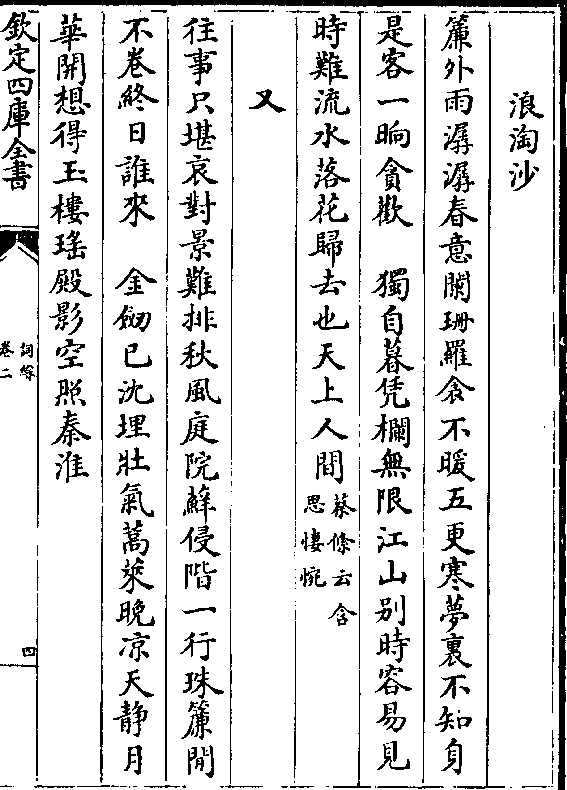 浪淘沙
簾外雨潺潺春意闌珊羅衾不暖五更寒夢裏不知身
是客一晌貪歡　獨自暮凭欄無限江山别時容易見
時難流水落花歸去也天上人間蔡絛云含
思悽惋
又
往事只堪哀對景難排秋風庭院蘚侵階一行珠簾閒
不卷終日誰來　金劒已沈埋壯氣蒿萊晚凉天静月
華開想得玉樓瑶殿影空照秦淮
欽定四庫全書
詞綜
卷二
四